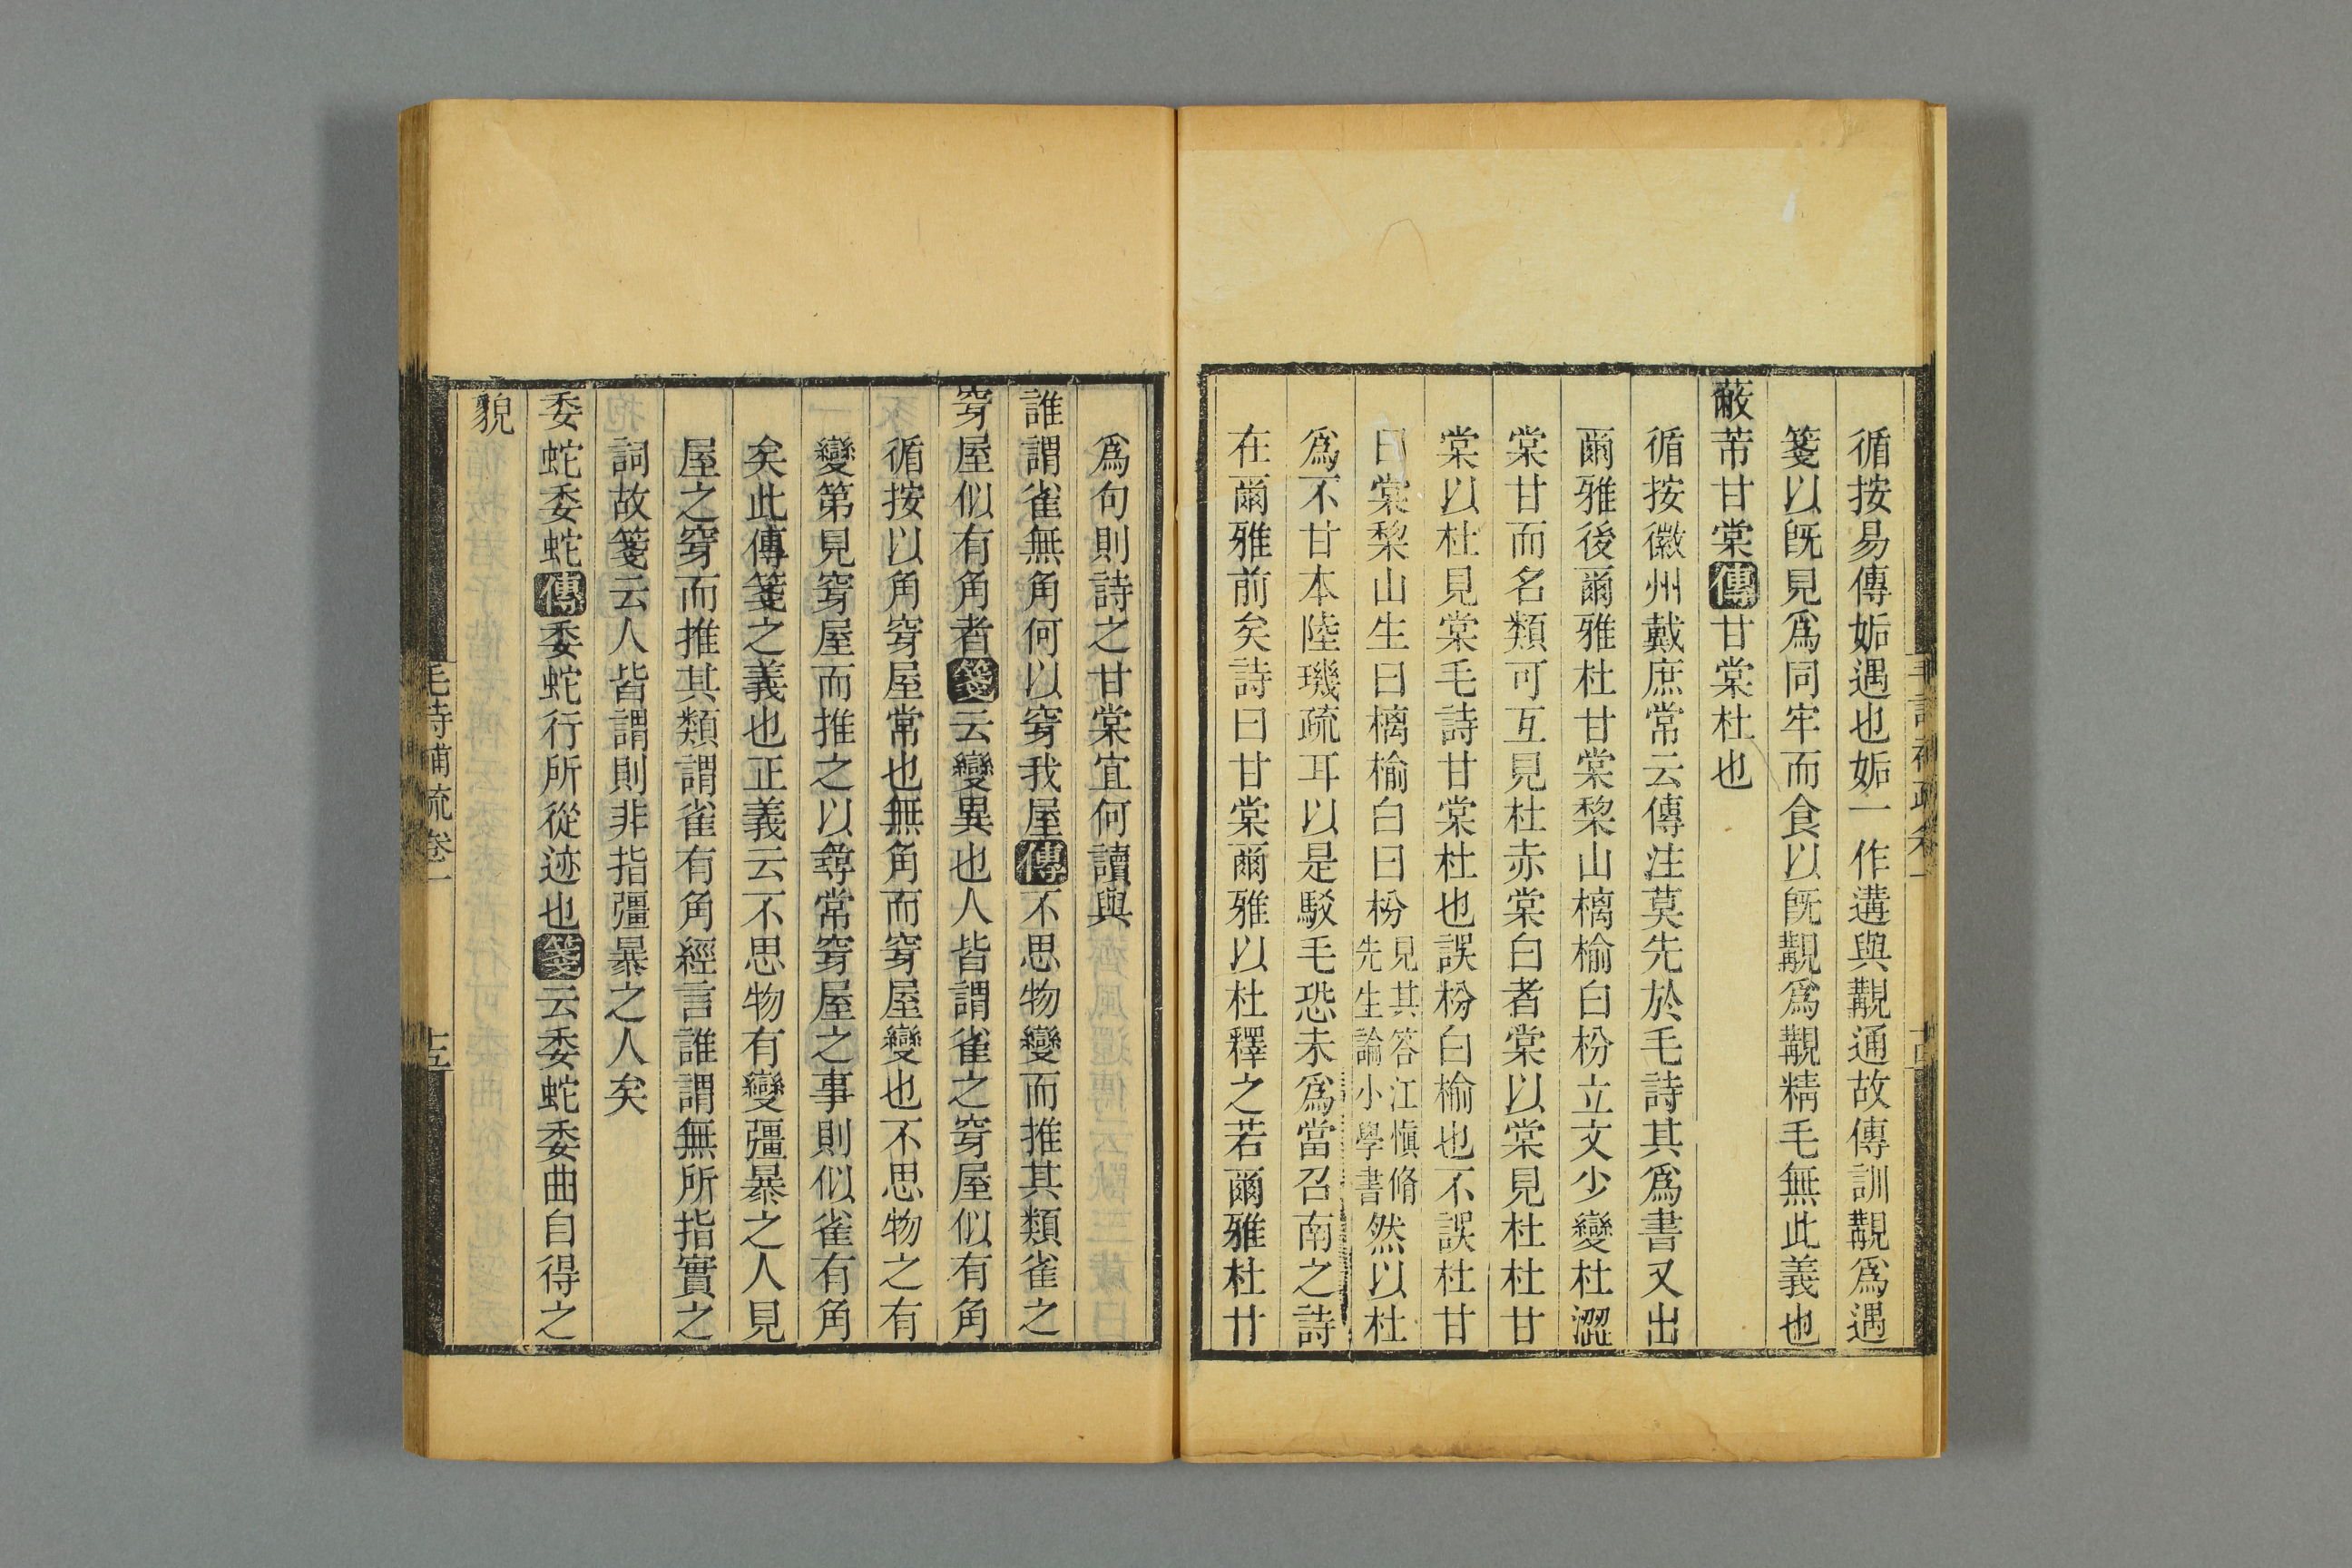 循按易傳姤遇也姤一作遘與覯通故傳訓覯爲遇
箋以旣見爲同牢而食以旣覯爲覯精毛無此義也
蔽芾甘棠傳甘棠杜也
循按徽州戴庶常云傳注莫先於毛詩其爲書又出
爾雅後爾雅杜甘棠棃山樆榆白枌立文少變杜澀
棠甘而名類可互見杜赤棠白者棠以棠見杜杜甘
棠以杜見棠毛詩甘棠杜也誤枌白榆也不誤杜甘
曰棠棃山生曰樆榆白曰枌見其答江愼脩先生論小學書然以杜
爲不甘本陸璣疏耳以是駁毛恐未爲當召南之詩
在爾雅前矣詩曰甘棠爾雅以杜釋之若爾雅杜甘
爲句則詩之甘棠宜何讀與
誰謂雀無角何以穿我屋傳不思物變而推其類雀之
穿屋似有角者箋云變異也人皆謂雀之穿屋似有角
循按以角穿屋常也無角而穿屋變也不思物之有
變第見穿屋而推之以尋常穿屋之事則似雀有角
矣此傳箋之義也正義云不思物有變彊暴之人見
屋之穿而推其類謂雀有角經言誰謂無所指實之
詞故箋云人皆謂則非指彊暴之人矣
委蛇委蛇傳委蛇行所從迹也箋云委蛇委曲自得之
貌
毛詩補疏卷一
十五